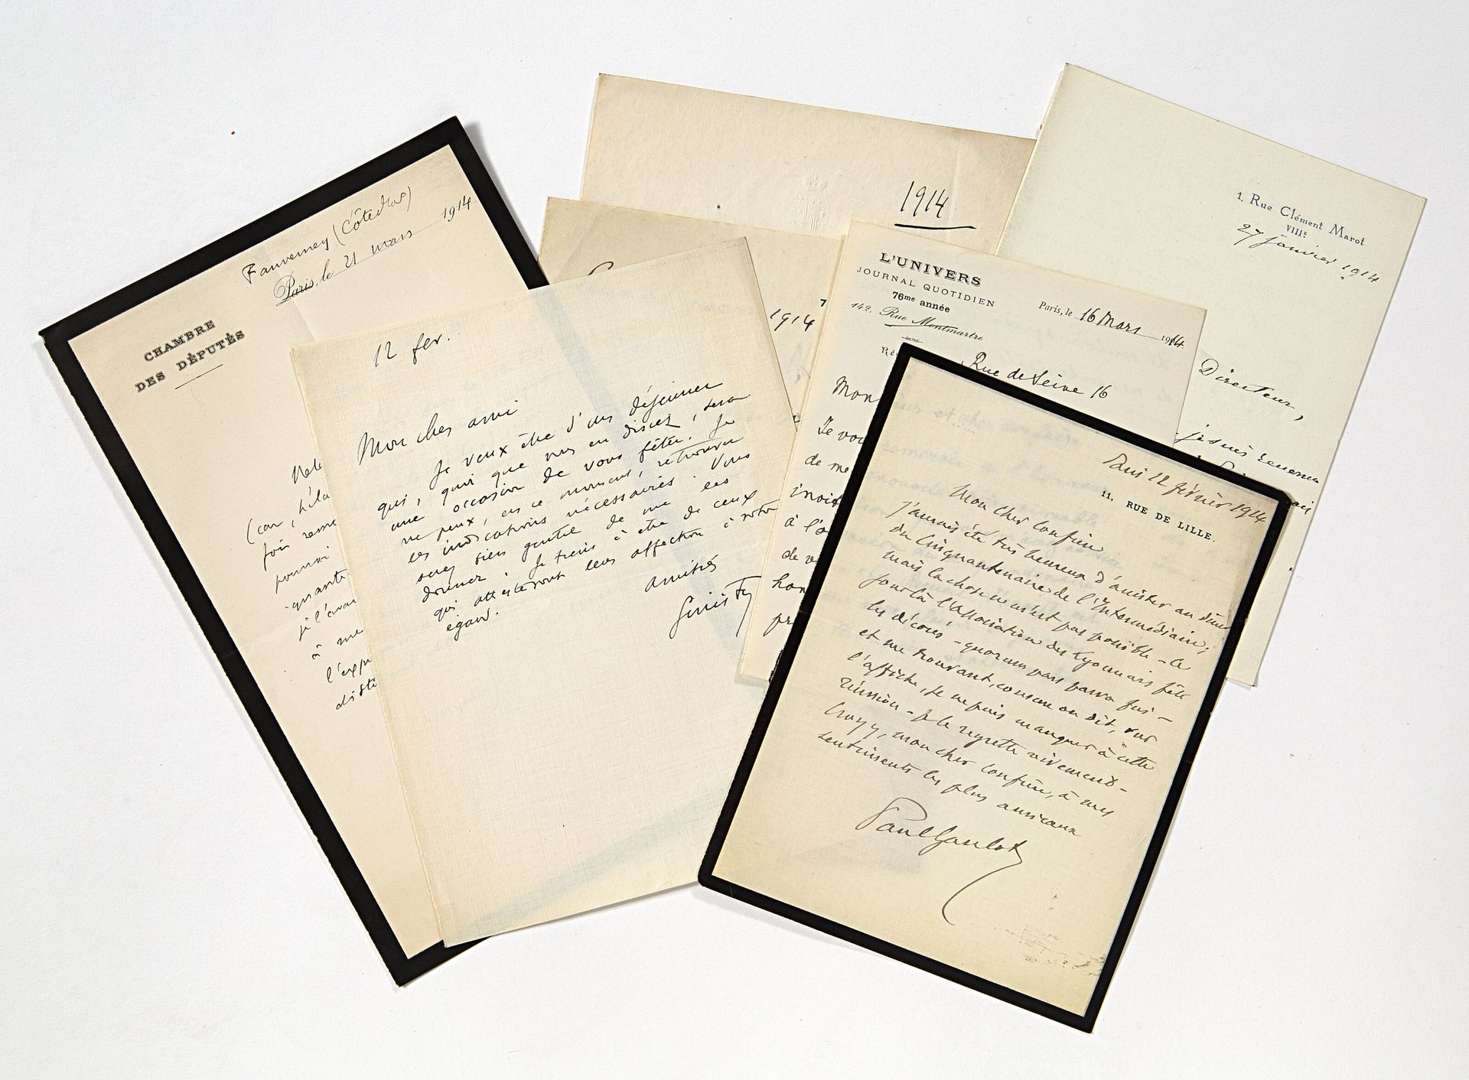 Fauverney (Côte d'Or)
Paris, le 21 mars 1914.
CHAMBRE
DES DÉPUTÉS
(car, hélas
fois
pourrai
quant
je l'avai
à me
l'exp
12 fev.
Mon cher ami
Je veux être d'un déjeuner
qui, quoi que vous en disiez, sera
une occasion de vous fêter. Je
ne peux, en ce moment, retrouver
les indications nécessaires. Vous
serez bien gentil de me les
donner. Je tiens à être de ceux
qui attesteront leur affection à votre
égard.
Amitiés
1914
7
1914
L'UNIVERS
JOURNAL QUOTIDIEN
76me année
142, Rue Montmartre
Paris, le 16 Mars 1914
Ré
Rue de Seine 16
Mon
Je vou
de me
à l'o
de v
hon
pr
1, Rue Clément Marot
VIIIe
27 janvier 1914
Directeur,
Paris 12 février 1914
11, RUE DE LILLE.
Mon cher Confrère
J'aurais été très heureux d'assister au dîner
du Cinquantenaire de l'Intermédiaire;
mais la chose ne m'est pas possible - Ce
jour là l'Association des Lyonnais fête
les décorés - quorum pars parva fui -
et me trouvant, comme on dit, sur
l'affiche, je ne puis manquer à cette
réunion - Je le regrette vivement -
Croyez, mon cher Confrère, à mes
sentiments les plus amicaux
Paul Gaulot